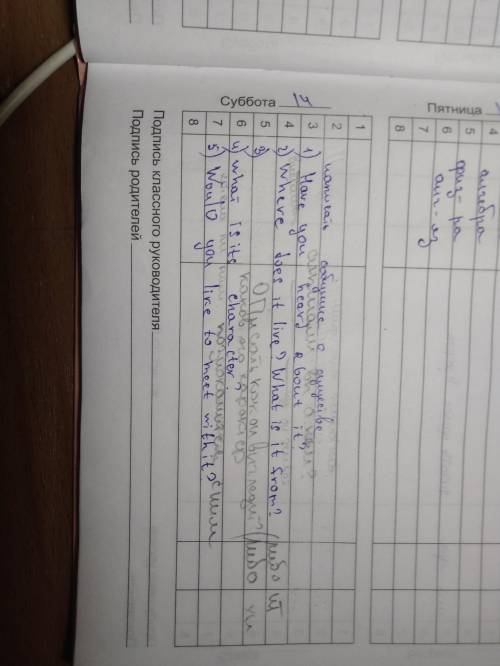 Пятница
4
5 алгебра
6 физ-ра
7 анг-яз
8
Суббота
1
2 написать о существе
3 1) Have you heard about it?
4 2) Where does it live? What is it from?
5 3) Описать как он выглядит? (либо
каков его характер (либо
6 4) What is its character;
познакомиться с ним
7 5) Would you like to meet with it?
8
Подпись классного руководителя
Подпись родителей